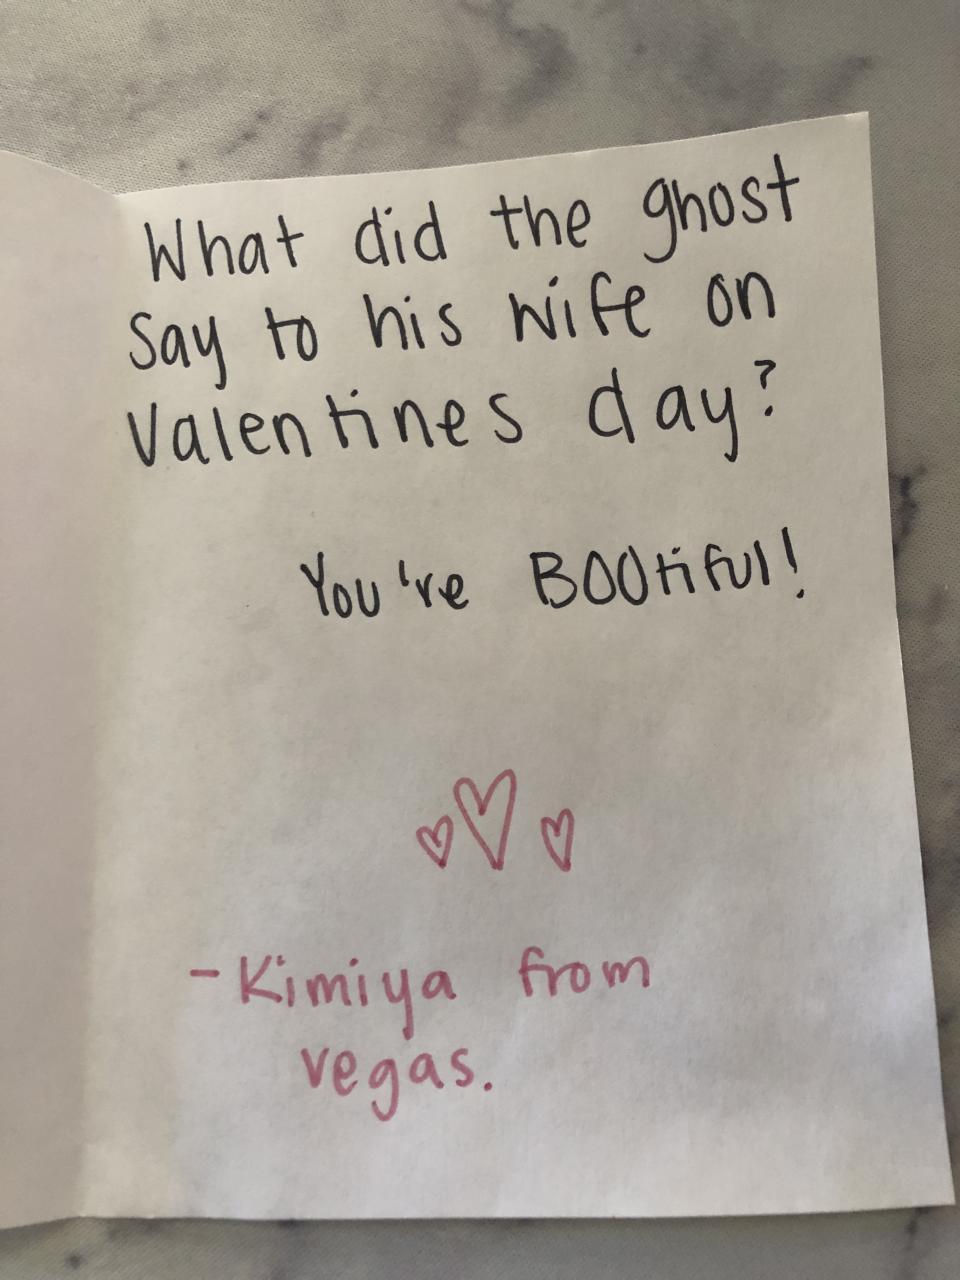 What did the ghost
say to his wife on
Valentines day?
You're BOOtiful!
- Kimiya from
vegas.